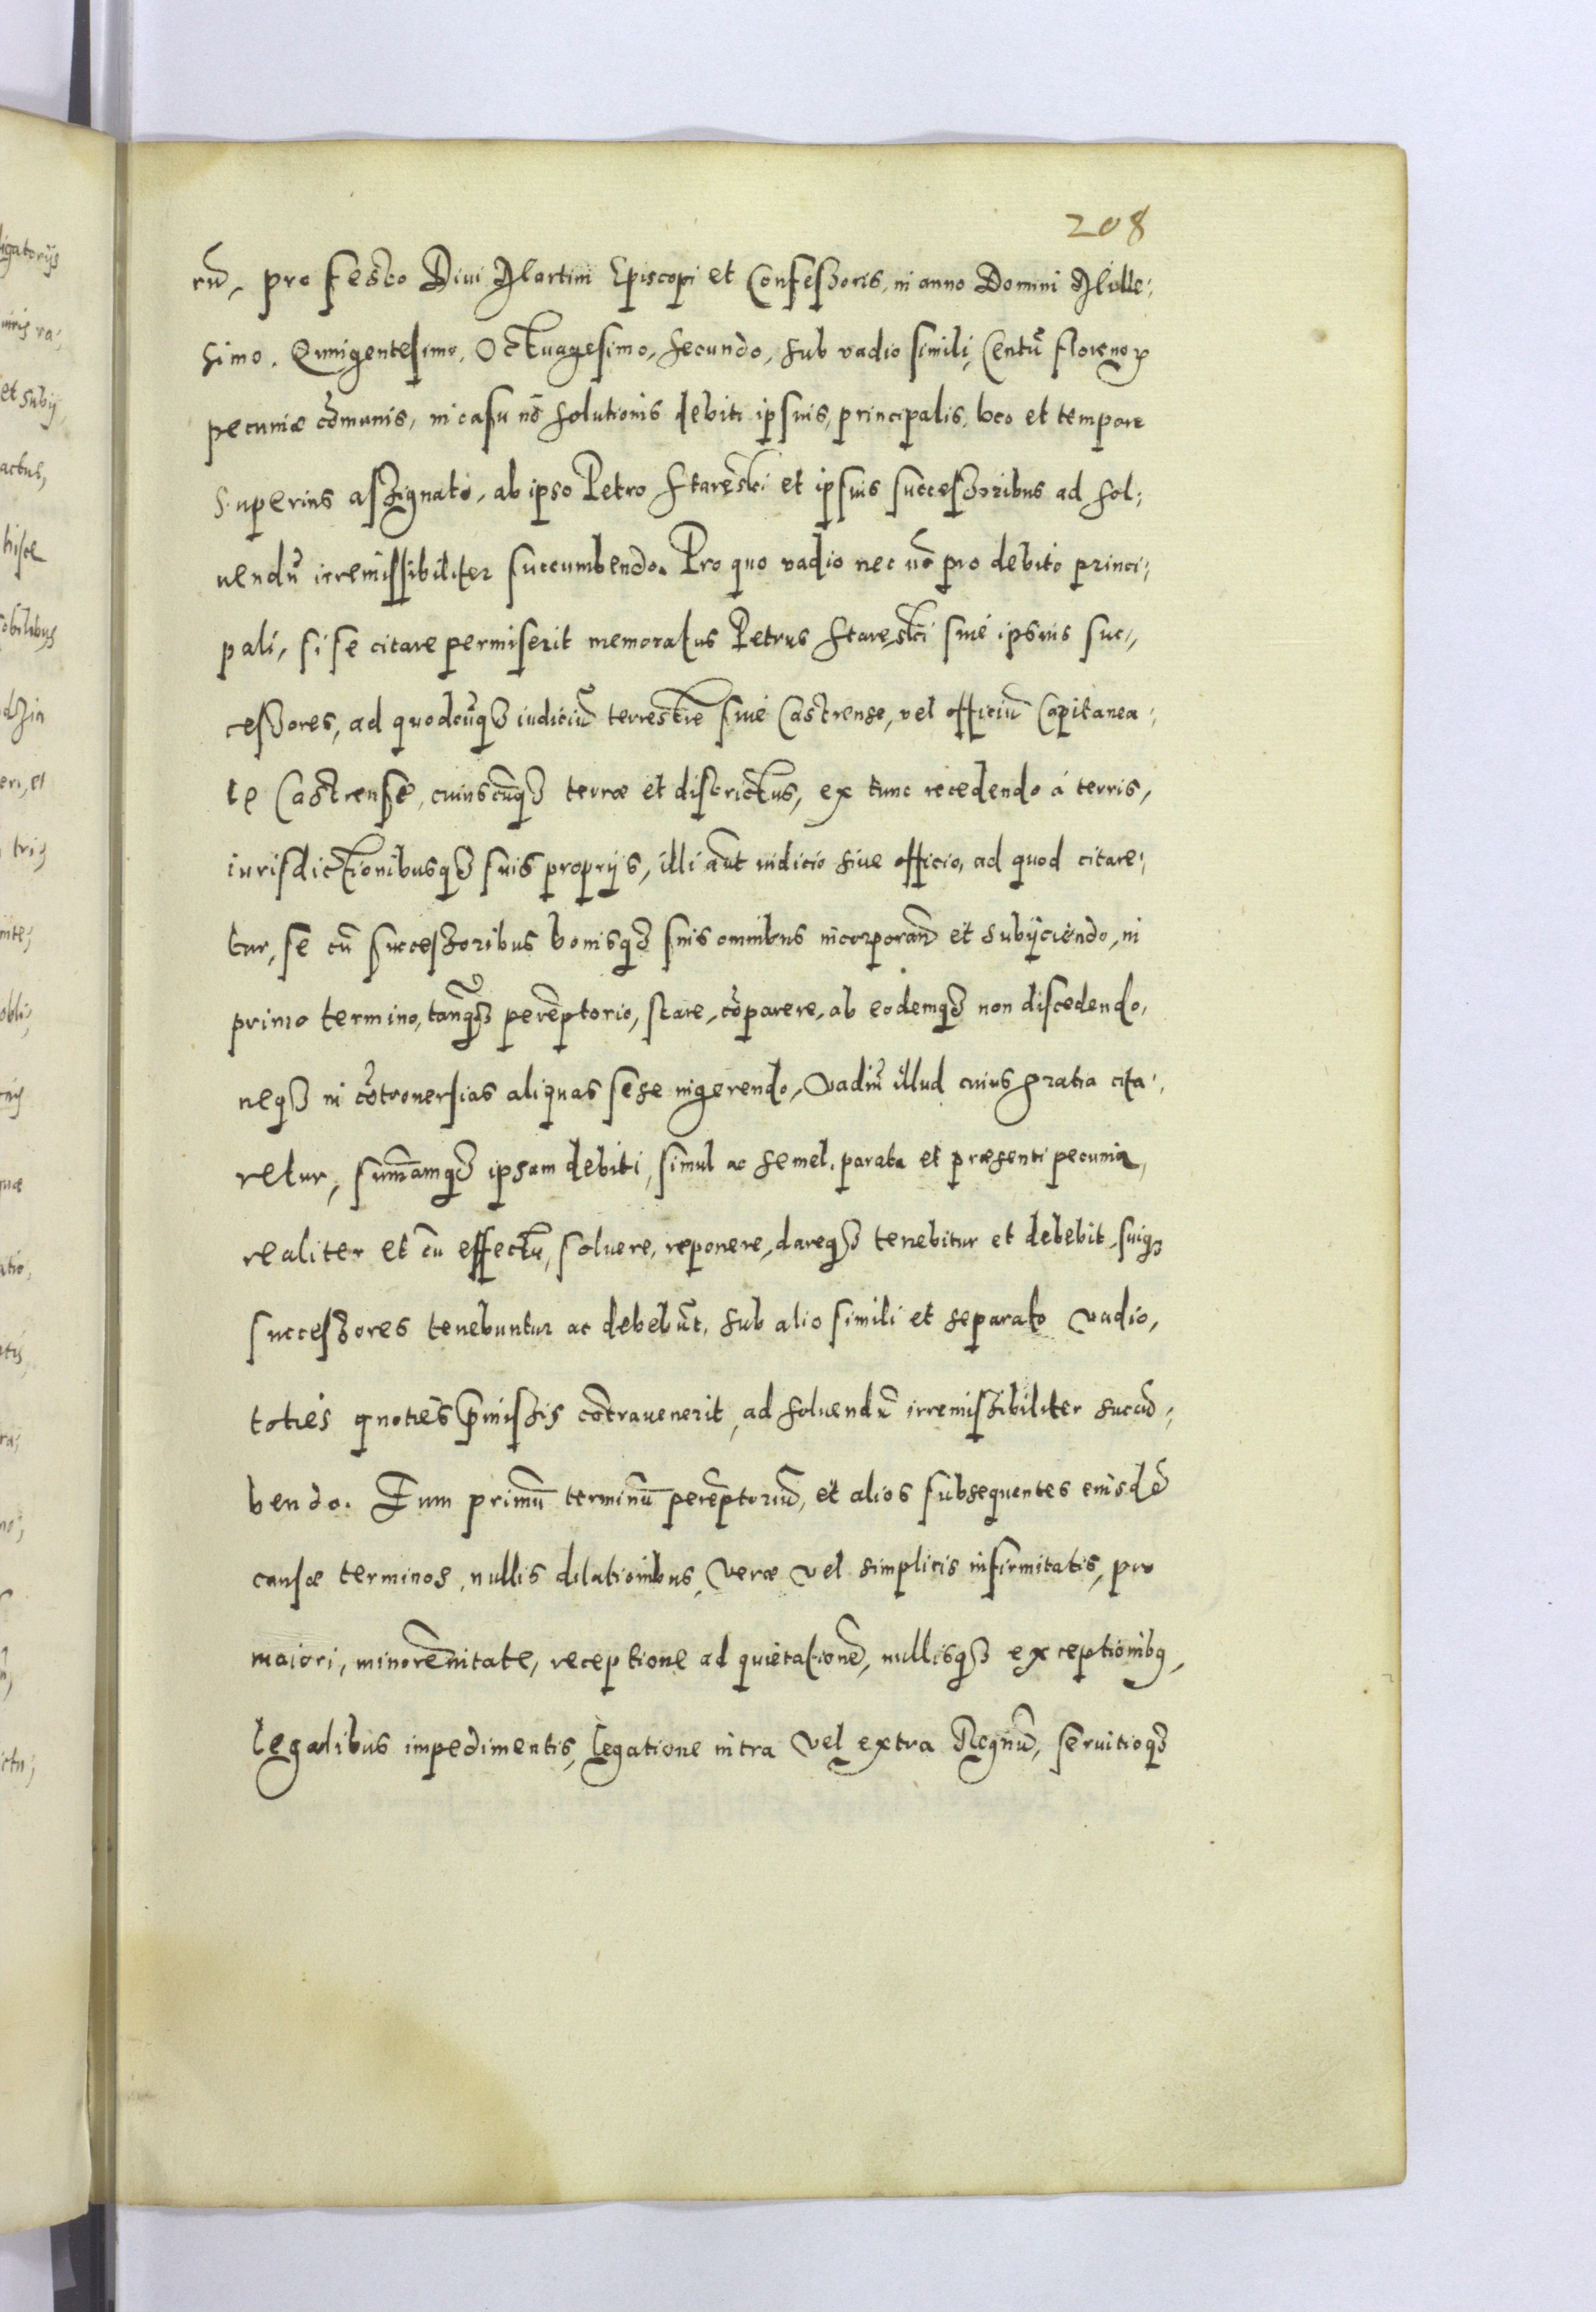 208
rū, pro festo Diui Martini Episcopi et Confessoris, in anno Domini Mille,,
simo, Quingentesimo, Octuagesimo, secundo, sub vadio simili, Centū florenoꝝ
pecuniæ cōmunis, in casu nō solutionis debiti ipsius, principalis, loco et tempore
superius assignato, ab ipso Petro Staręski et ipsius successoribus ad sol,,
uendū irremissibiliter succumbendo. Pro quo vadio nec nō pro debito princi,,
pali, si se citare permiserit memoratus Petrus Staręski siue ipsius suc,,
cessores, ad quodcūqꝫ iudiciū terrestre siue Castrense, vel officiū Capitanea,,
le Castrense, cuiuscūqꝫ terræ et districtus, ex tunc recedendo á terris,
iurisdictionibusqꝫ suis proprijs, illi aūt iudicio siue officio, ad quod citare,,
tur, se cū successoribus bonisqꝫ suis omnibus incorporand et subijciendo, in
primo termino, tanqꝫ perēptorio, stare, cōparere, ab eodemqꝫ non discedendo,
neqꝫ in cōtrouersias aliquas sese ingerendo, Vadiū illud cuius gratia cita,,
retur, sum̄amqꝫ ipsam debiti, simul ac semel, parata et præsenti pecunia,
realiter et cū effectu, soluere, reponere, dareqꝫ tenebitur et debebit, suiqꝫ
successores tenebuntur ac debebūt, sub alio simili et separato vadio,
toties quoties p̄missis cōtrauenerit, ad soluendū irremissibiliter succū,,
bendo. Eum primū terminū perēptoriū, et alios subsequentes eiusdē
causæ terminos, nullis dilationibus, veræ vel simplicis infirmitatis, pro
maiori, minorēnitate, receptione ad quietationē, nullisqꝫ exceptionibꝰ,
legalibus impedimentis, legatione intra vel extra Regnū, seruitioqꝫ